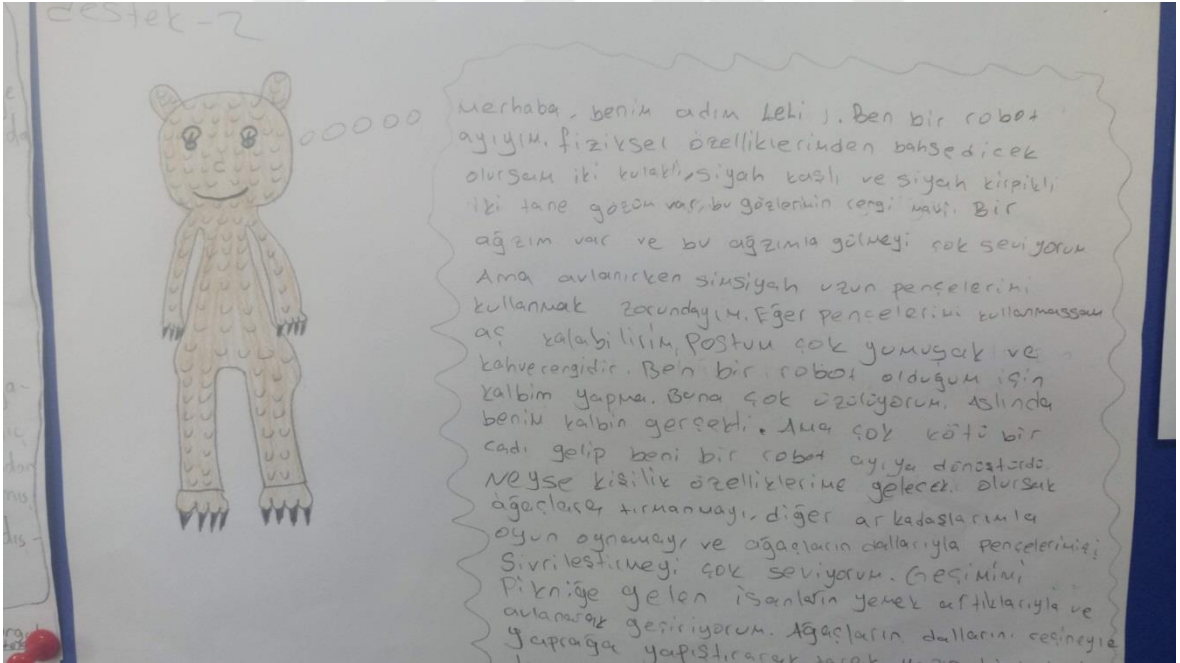 destek-2
Merhaba, benim adım Leli ). Ben bir robot
ayıyım. fiziksel özelliklerimden bahsedicek
olursam iki kulaklı, siyah kaşlı ve siyah kirpikli
iki tane gözüm var, bu gözlerimin rengi mavi. Bir
ağzım var ve bu ağzımla gülmeyi çok seviyorum
Ama avlanırken simsiyah uzun pençelerimi
kullanmak zorundayım. Eğer pençelerimi kullanmassam
aç kalabilirim, Postum çok yumuşak ve
kahverengidir. Ben bir robot olduğum için
kalbim yapma. Buna çok üzülüyorum. Aslında
benim kalbim gerçekti. Ama çok kötü bir
cadı gelip beni bir robot ayıya dönüştürdü.
Neyse kişilik özelliklerime gelecek olursak
ağaçlara tırmanmayı, diğer arkadaşlarımla
oyun oynamayı ve ağaçların dallarıyla pençelerimi
Sivrileştirmeyi çok seviyorum. Geçimimi
Pikniğe gelen isanların yemek artıklarıyla ve
avlanarak geçiriyorum. Ağaçların dallarını reçineyle
yaprağa yapıştırarak